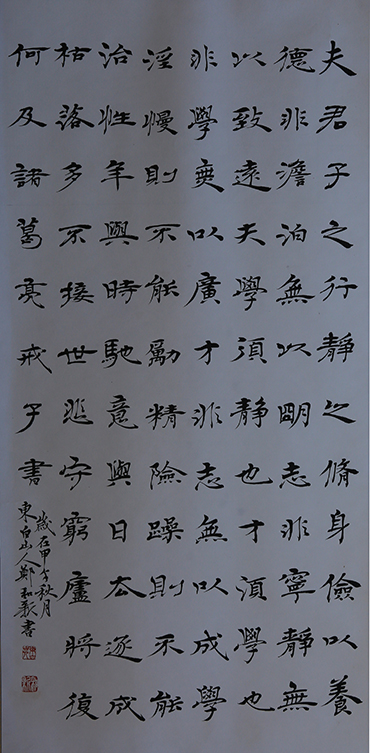 夫君子之行靜以脩身儉以養
德非澹泊無以明志非寧靜無
以致遠夫學須靜也才須學也
非學無以廣才非志無以成學
淫慢則不能勵精險躁則不能
治性年與時馳意與日去遂成
枯落多不接世悲守窮廬將復
何及諸葛亮戒子書
歲在甲午秋月
東白山人鄭和書